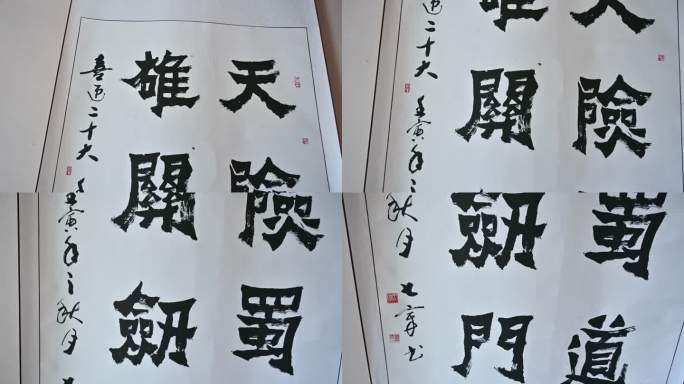 天險蜀
雄關劍
喜迎二十大 壬寅年之秋月
天險蜀道
雄關劍門
迎二十大 壬寅年之秋月